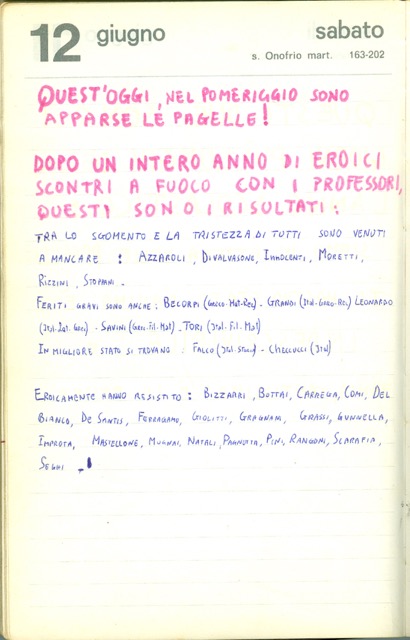 12 giugno sabato
s. Onofrio mart. 163-202
QUEST'OGGI, NEL POMERIGGIO SONO
APPARSE LE PAGELLE!
DOPO UN INTERO ANNO DI EROICI
SCONTRI A FUOCO CON I PROFESSORI,
QUESTI SONO I RISULTATI:
TRA LO SGOMENTO E LA TRISTEZZA DI TUTTI SONO VENUTI
A MANCARE : AZZAROLI, DIVALVASONE, INNOCENTI, MORETTI,
RIZZINI, STOPPANI.
FERITI GRAVI SONO ANCHE: BECORPI (GRECO-MAT-REL) - GRANDI (ITAL-GRECO-REL) LEONARDO
(ITAL. LAT. GREC) - SAVINI (GREC. FIL. MAT) - TORI (ITAL. FIL. MAT)
IN MIGLIORE STATO SI TROVANO : FALCO (ITAL. STOR.) - CHECCUCCI (ITAL)
EROICAMENTE HANNO RESISTITO : BIZZARRI, BOTTAI, CARREGA, COMI, DEL
BIANCO, DE SANTIS, FERRAGAMO, GIOLITTI, GRAGNANI, GRASSI, GUNNELLA,
IMPROTA, MASIELLONE, MUGNAI, NATALI, PAGNOTTA, PINI, RANGONI, SCARAFIA,
SEGHI